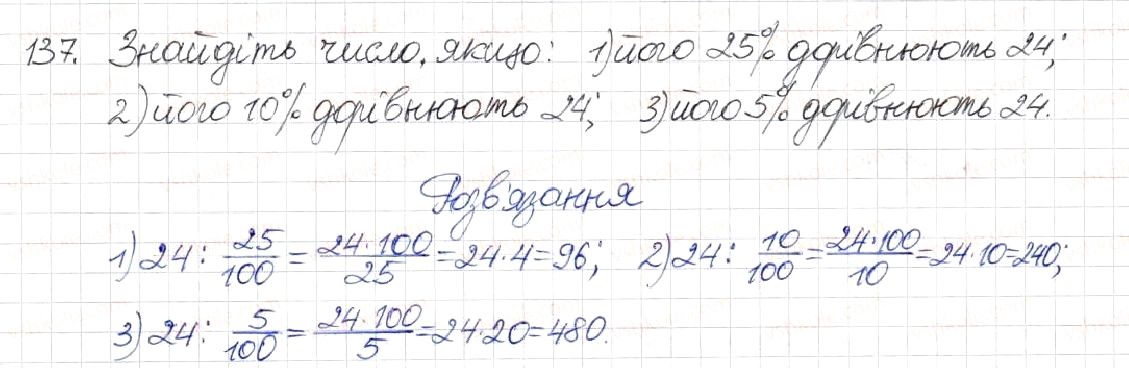 137. Знайдіть число, якщо: 1) його 25% дорівнюють 24;
2) його 10% дорівнюють 24; 3) його 5% дорівнюють 24.
Розв'язання
1) 24 : 25/100 = 24·100/25 = 24·4 = 96; 2) 24 : 10/100 = 24·100/10 = 24·10 = 240;
3) 24 : 5/100 = 24·100/5 = 24·20 = 480.